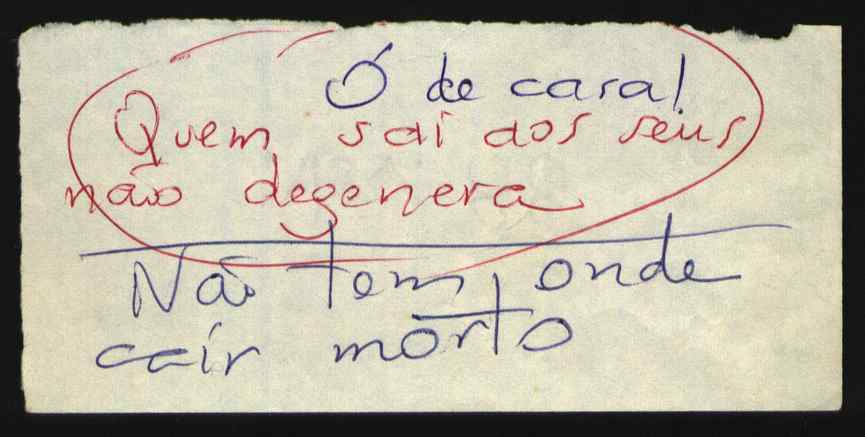 Ó de casa!
Quem sai aos seus
não degenera
Não tem onde
cair morto